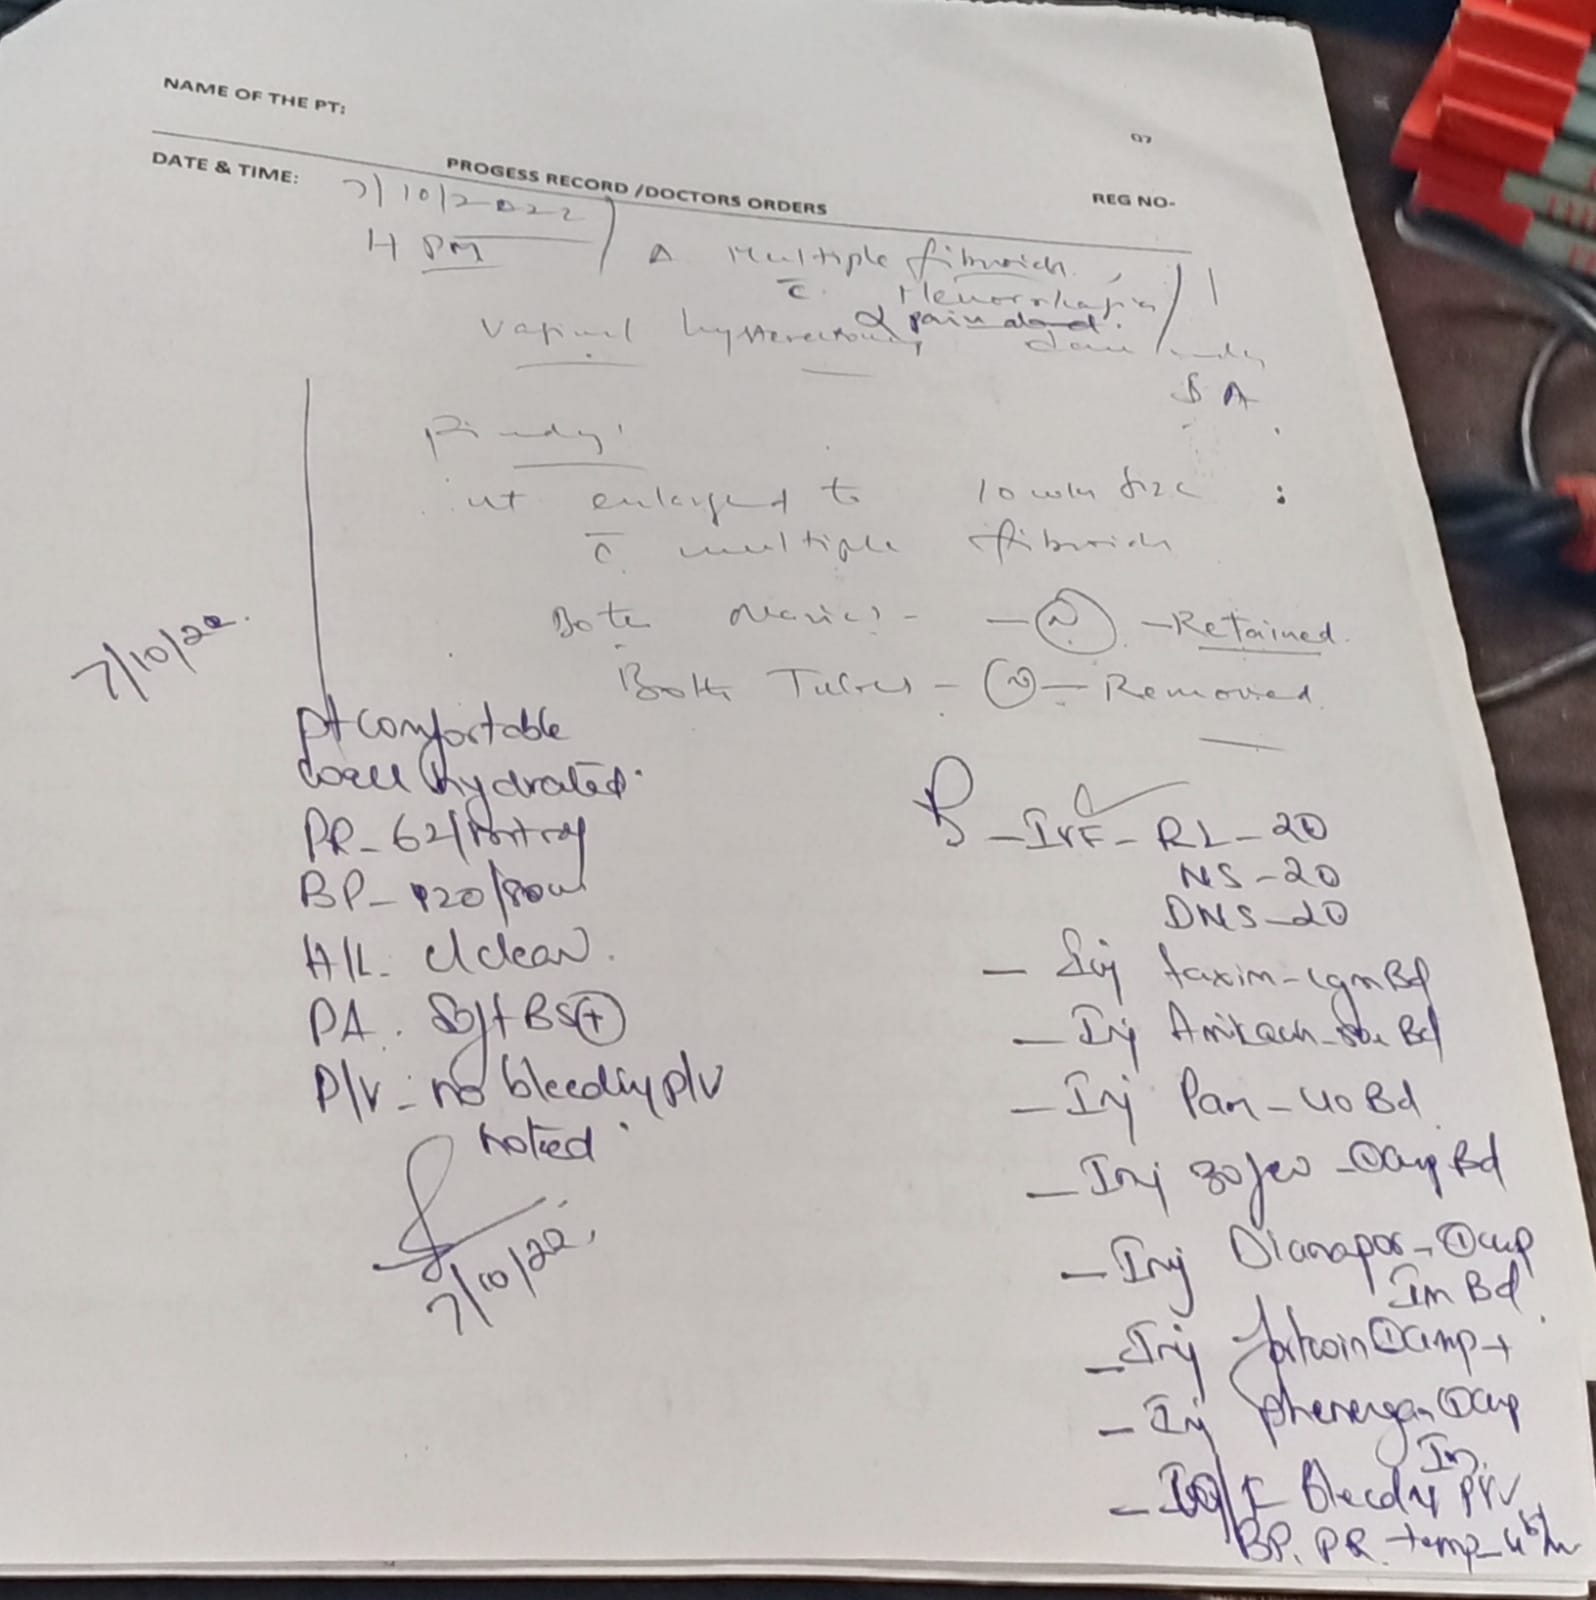 NAME OF THE PT:
07
DATE & TIME:
PROGESS RECORD /DOCTORS ORDERS
REG NO-
7/10/2022
4 PM
Δ Multiple fibroids
c̄ Menorrhagia
& pain abd.
Vaginal hysterectomy done under
SA
Findg:
ut enlarged to 10 wks size
c̄ multiple fibroids
Both ovaries - - N - Retained.
Both Tubes - N - Removed.
7/10/22.
pt comfortable
well hydrated.
PR - 62/
BP - 120/80
H/L - clear.
PA. Soft BS +
P/V - no bleeding p/v
noted.
7/10/22.
- IVF - RL - 20
NS - 20
DNS - 20
- Inj taxim - 1gm Bd
- Inj Bd
- Inj Pan - 40 Bd
- Inj zofer - 1 amp Bd
- Inj - 1 amp
Im Bd
- Inj fortwin 1 amp +
- Inj phenergan 1 amp
Im.
- I/O bleeding P/V
BP. PR. temp - 4